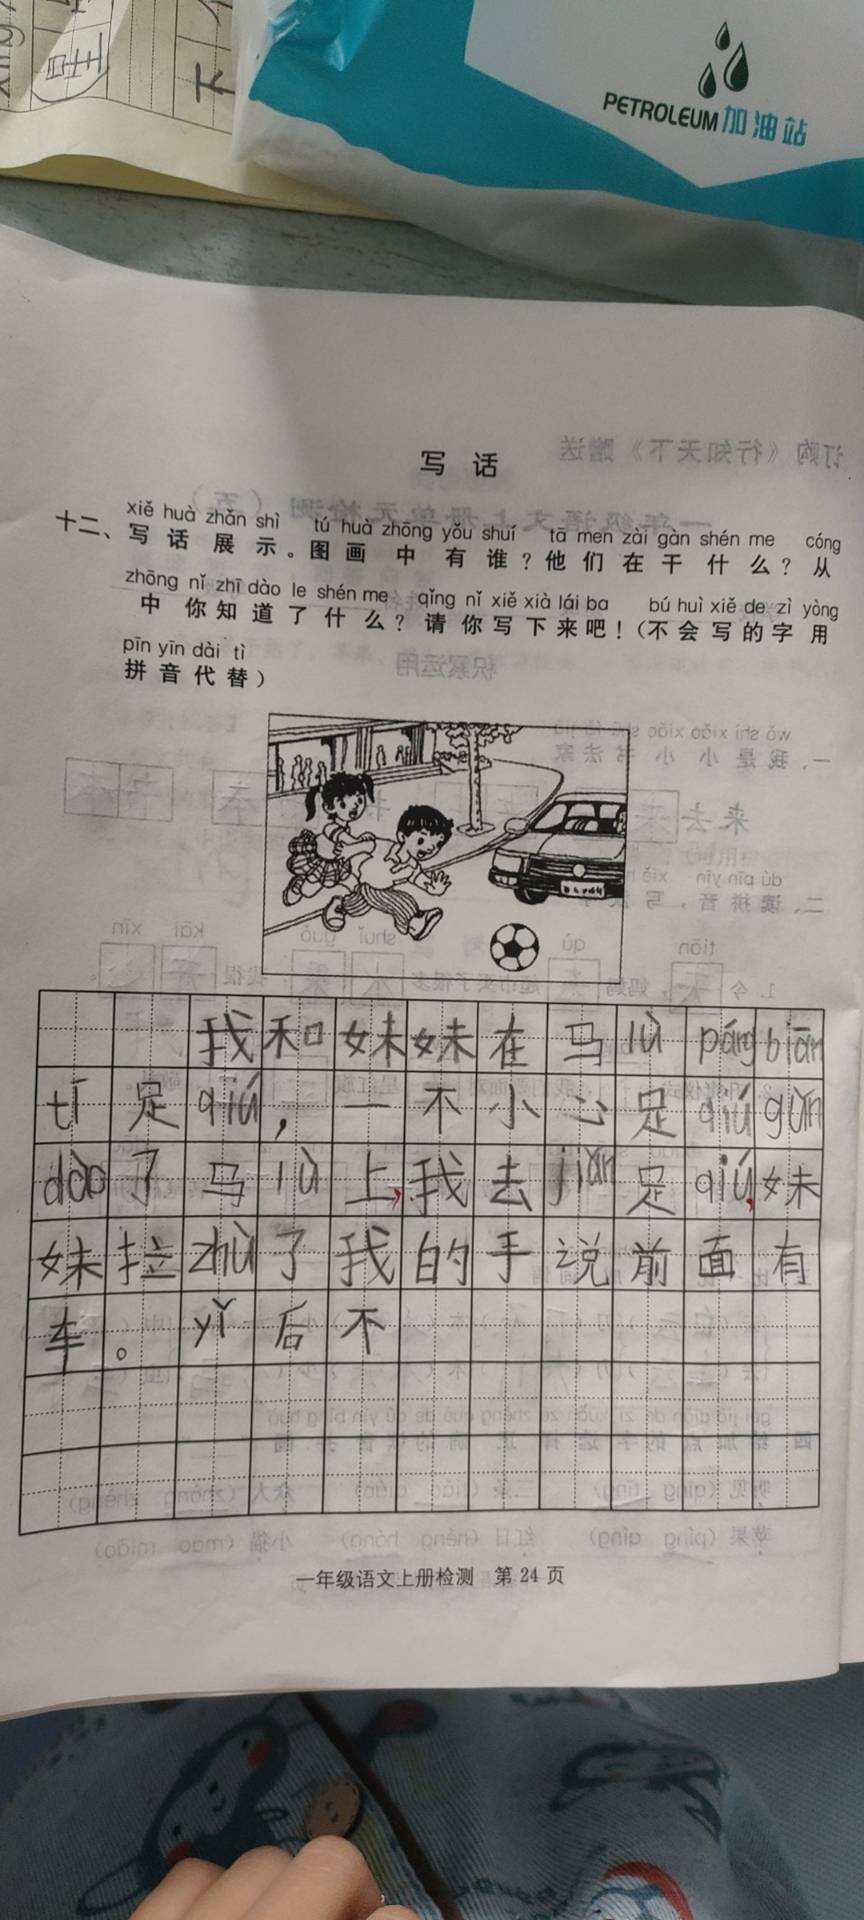 PETROLEUM加油站
写话
xiě huà zhǎn shì tú huà zhōng yǒu shuí tā men zài gàn shén me cóng
十二、写话展示。图画中有谁？他们在干什么？从
zhōng nǐ zhī dào le shén me qǐng nǐ xiě xià lái ba bú huì xiě de zì yòng
中你知道了什么？请你写下来吧！(不会写的字用
pīn yīn dài tì
拼音代替)
我和妹妹在马lù páng biān
tī足qiú，一不小心足qiú gǔn
dào了马lù上，我去jiǎn足qiú，妹
妹拉zhù了我的手说前面有
车。yǐ后不
一年级语文上册检测 第24页